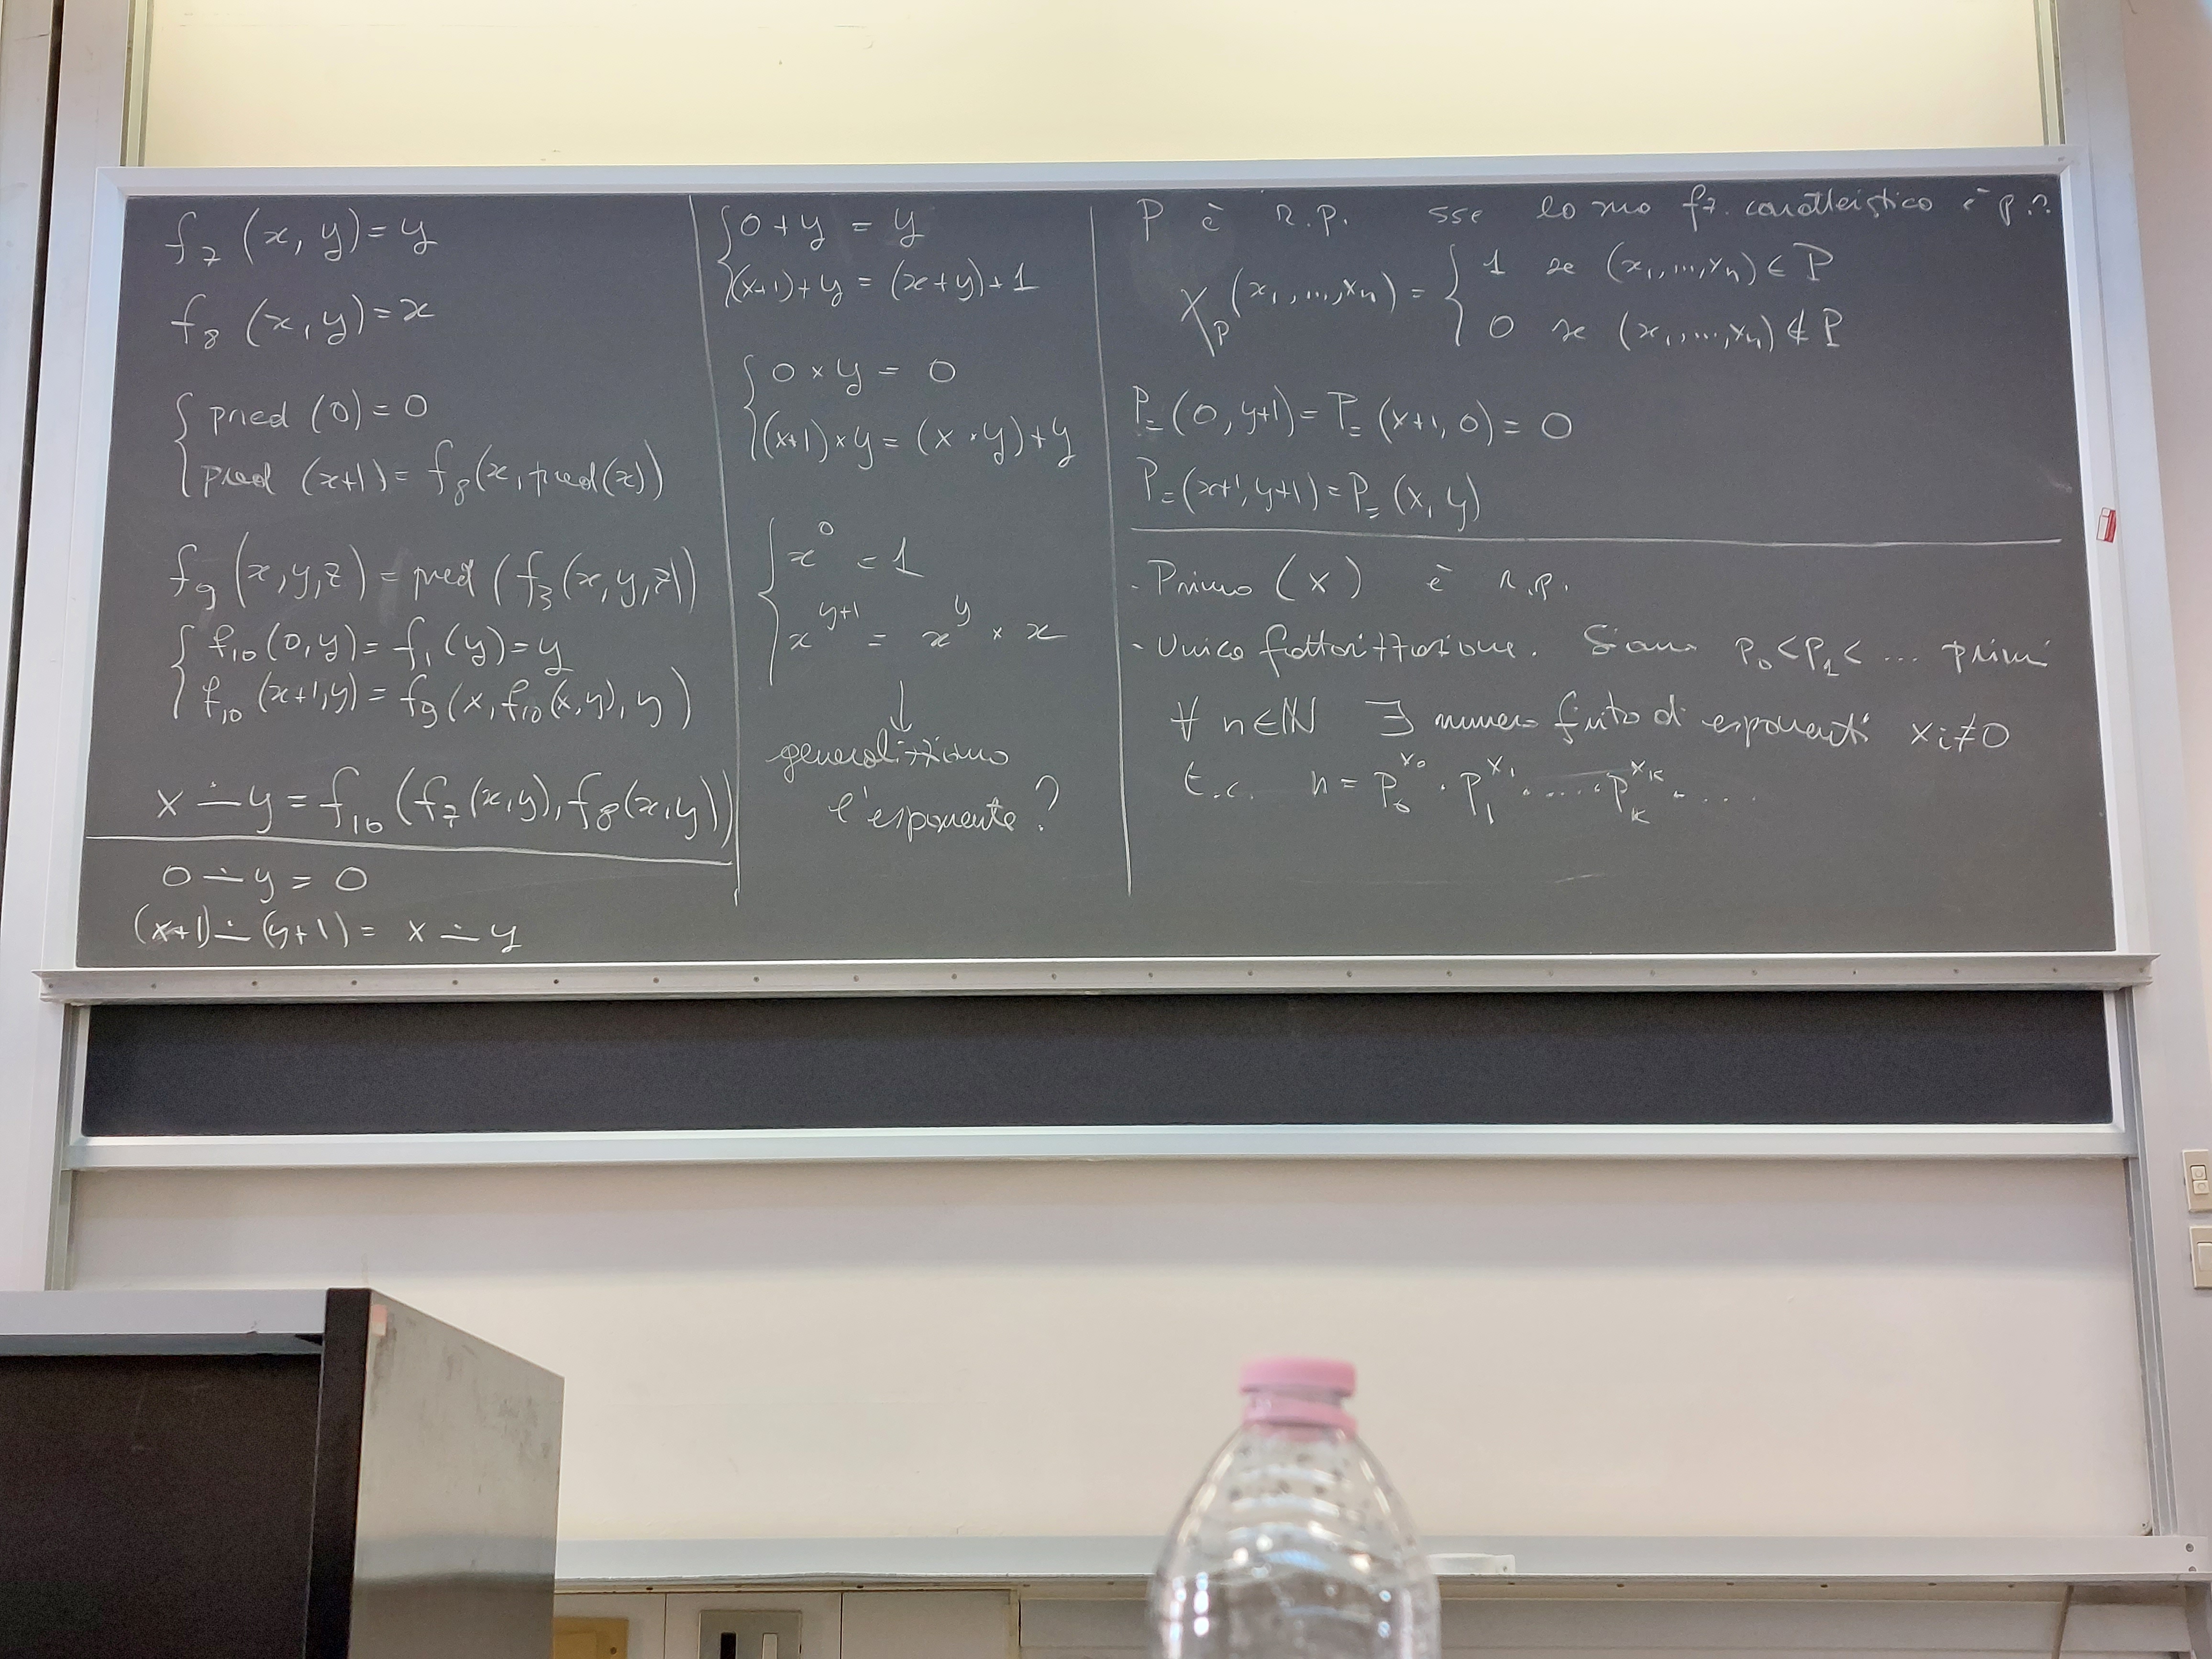 f₇ (x, y) = y
f₈ (x, y) = x
pred (0) = 0
pred (x+1) = f₈(x, pred(x))
f₉ (x, y, z) = pred (f₃(x, y, z))
f₁₀(0, y) = f₁(y) = y
f₁₀(x+1, y) = f₉(x, f₁₀(x, y), y)
x ∸ y = f₁₀(f₇(x, y), f₈(x, y))
0 ∸ y = 0
(x+1) ∸ (y+1) = x ∸ y
0 + y = y
(x+1) + y = (x+y) + 1
0 × y = 0
(x+1) × y = (x × y) + y
x⁰ = 1
x^{y+1} = x^y × x
↓
generalizziamo
l'esponente?
P è r.p. sse la sua fz. caratteristica è p.r.
χ_P(x₁, ..., xₙ) = { 1 se (x₁, ..., xₙ) ∈ P
0 se (x₁, ..., xₙ) ∉ P
P₌(0, y+1) = P₌(x+1, 0) = 0
P₌(x+1, y+1) = P₌(x, y)
- Primo (x) è r.p.
- Unica fattorizzazione. Siano p₀ < p₁ < ... primi
∀ n ∈ ℕ ∃ numero finito di esponenti xᵢ ≠ 0
t.c. n = p₀^{x₀} · p₁^{x₁} · .... · p_k^{x_k} · ....